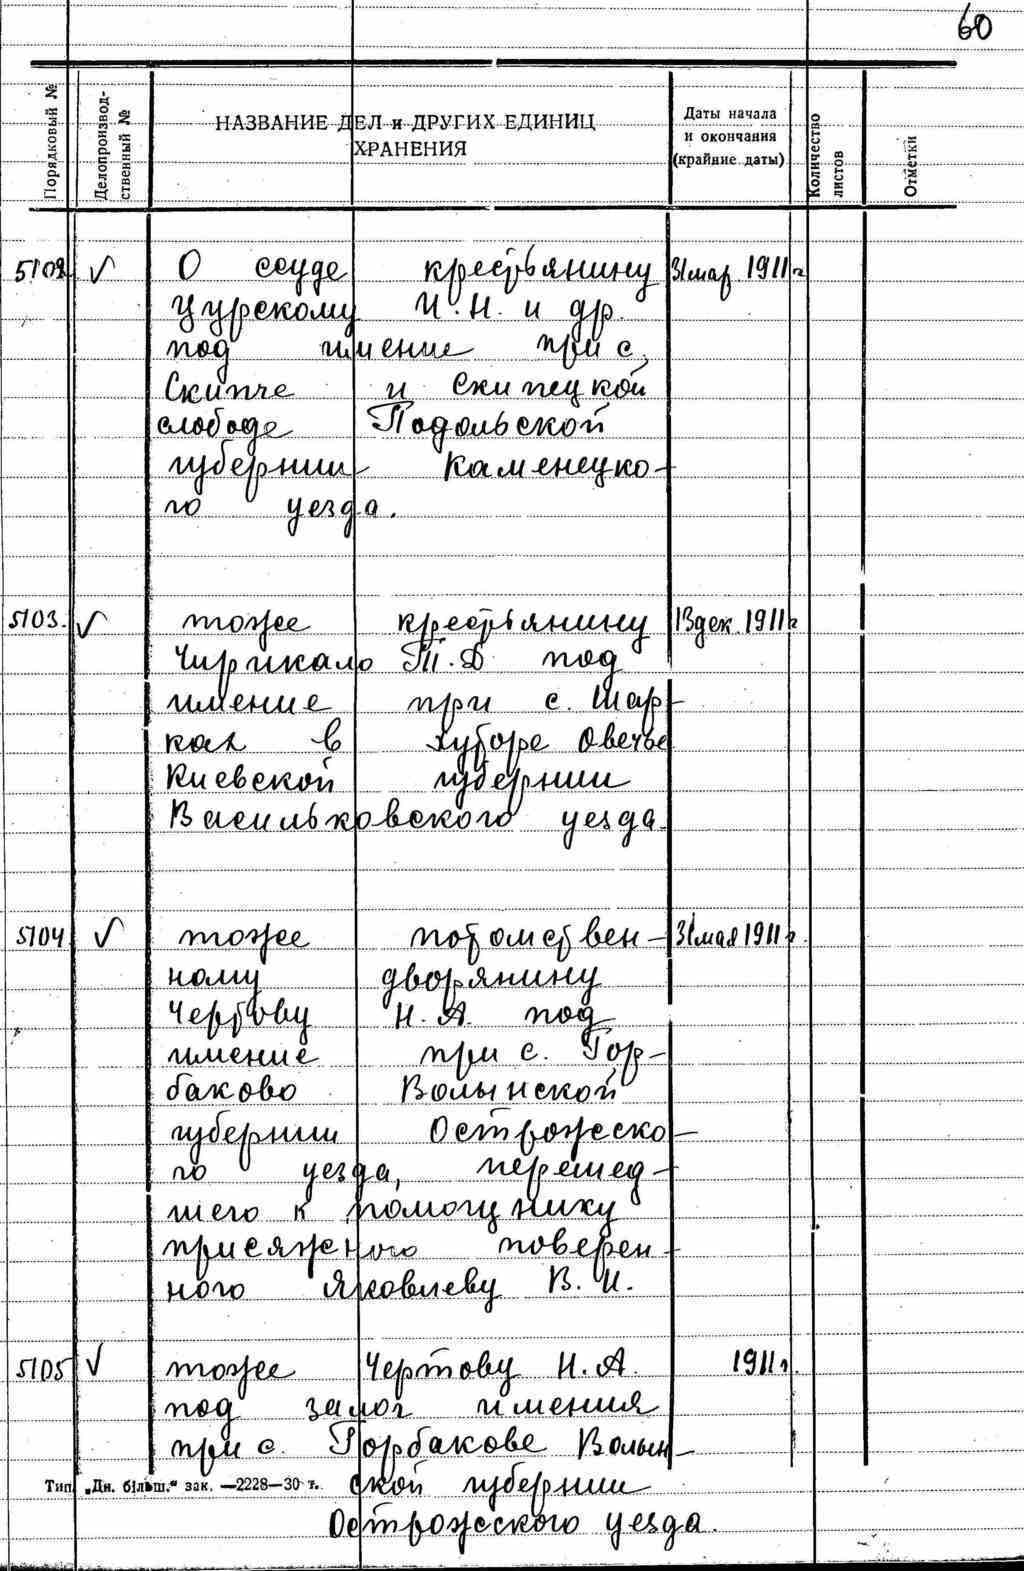 60
Порядковый №
Делопроизвод-
ственный №
НАЗВАНИЕ ДЕЛ и ДРУГИХ ЕДИНИЦ
ХРАНЕНИЯ
Даты начала
и окончания
(крайние даты)
Количество
листов
Отметки
5102 ✓ О ссуде крестьянину 31 мар. 1911 г
Цурскому И. Н. и др.
под имение при с.
Скипче и Скипецкой
слободе Подольской
губернии Каменецко-
го уезда.
5103. ✓ тоже крестьянину 13 дек. 1911 г
Чирикало Т. Д. под
имение при с. Шар-
ках в хуторе Овечье
Киевской губернии
Васильковского уезда.
5104 ✓ тоже потомствен- 31 мая 1911 г.
ному дворянину
Чертову Н. А. под
имение при с. Гор-
баково Волынской
губернии Острожеско-
го уезда, перешед-
шего к помощнику
присяжного поверен-
ного Яковлеву В. И.
5105 ✓ тоже Чертову Н. А. 1911 г.
под залог имения
при с. Горбакове Волын-
Тип. „Дн. більш.“ зак. —2228—30 т. ской губернии
Острожеского уезда.